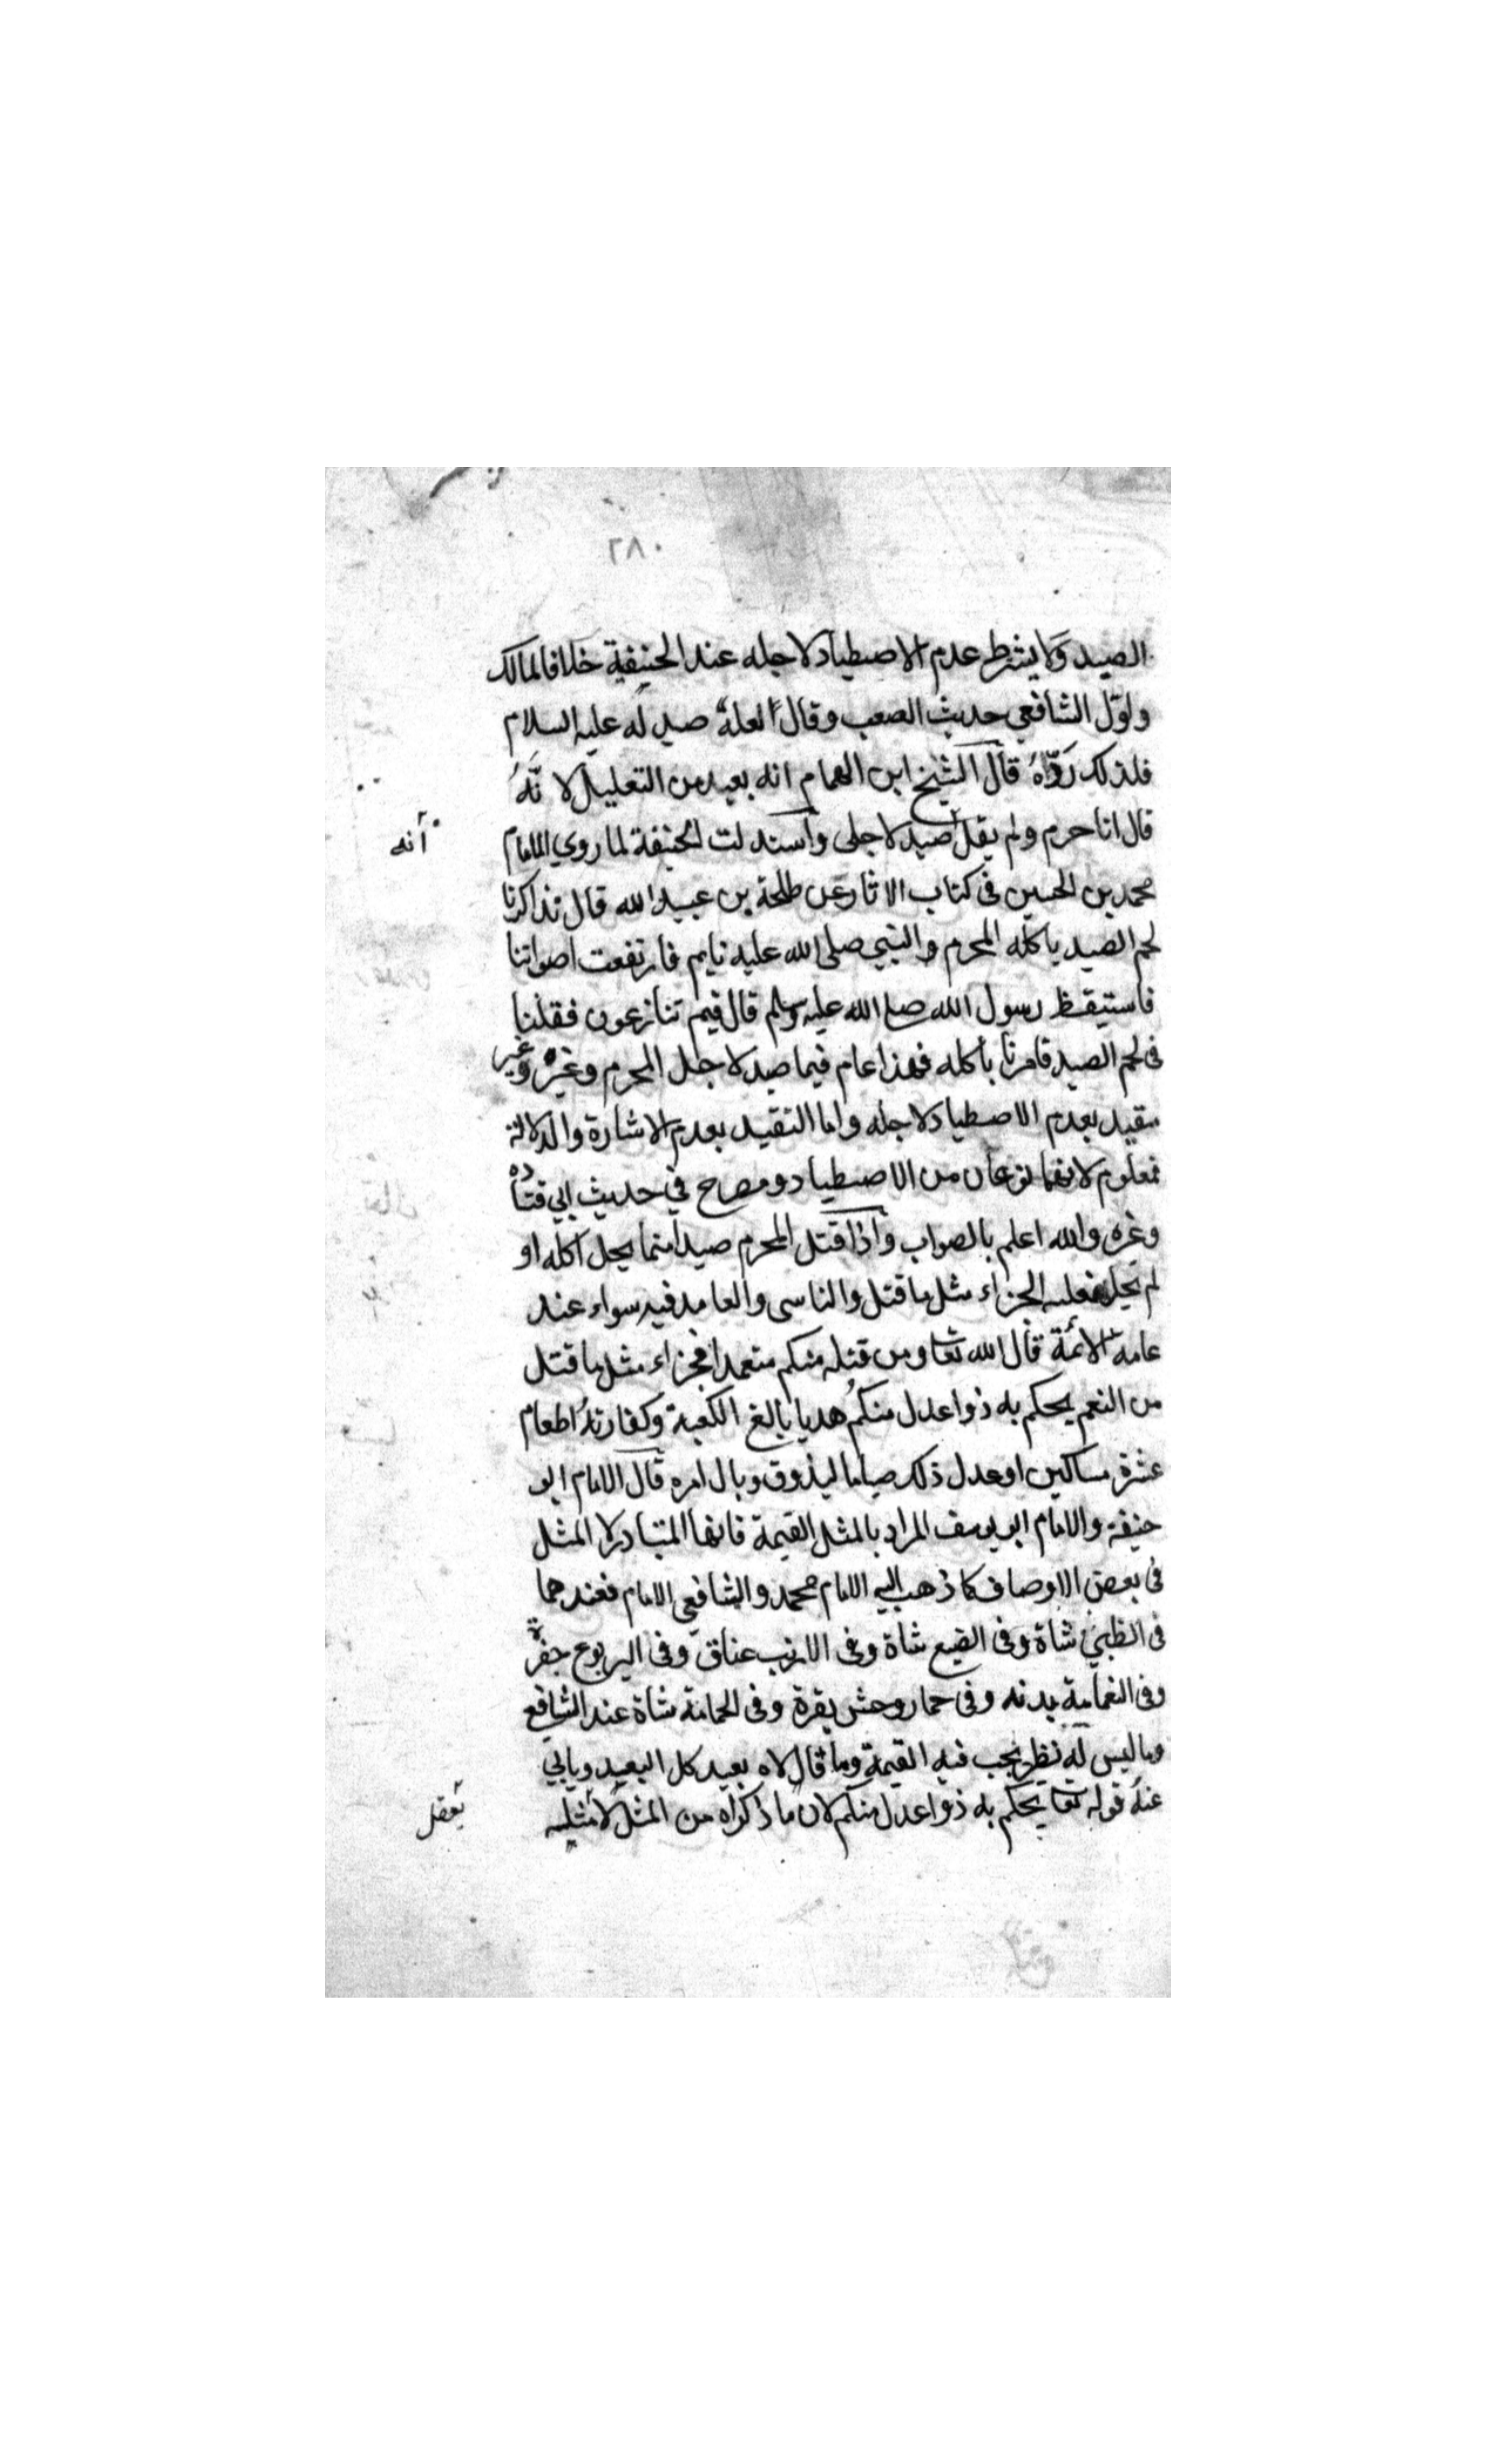 ٢٨٠
الصيد ولا يشترط عدم الاصطياد لاجله عند الحنيفية خلافا لمالك
واوّل الشافعي حديث الصعب وقال لعله صيد له عليه السلام
فلذلك ردّه قال الشيخ ابن الهمام انه بعيد من التعليل لانّه
قال انا حرم ولم يقل صيد لاجلى واستدلت الحنفية لما روي الامام
أنه
محمد بن الحسين فى كتاب الاثار عن طلحة بن عبيد الله قال تذاكرنا
لحم الصيد ياكله المحرم والنبي صلى الله عليه نايم فارتفعت اصواتنا
فاستيقظ رسول الله صلى الله عليه وسلم قال فيم تنازعون فقلنا
فى لحم الصيد فامرنا باكله فهذا عام فيما صيد لاجل المحرم وغيره وغير
مقيد بعدم الاصطياد لاجله واما التقييد بعدم الاشارة والدلالة
فمعلوم لانهما نوعان من الاصطياد ومصرح في حديث ابي قتاده
وغيره والله اعلم بالصواب واذا قتل المحرم صيدا مما يحل اكله او
لم يحل فعليه الجزاء مثل ما قتل والناسى والعامد فيه سواء عند
عامة الائمة قال الله تعا ومن قتله منكم متعمدا فجزاء مثل ما قتل
من النعم يحكم به ذوا عدل منكم هديا بالغ الكعبة وكفارته اطعام
عشرة مساكين او عدل ذلك صياما ليذوق وبال امره قال الامام ابو
حنيفة والامام ابو يوسف المراد بالمثل القيمة فانها المتبادر لا المثل
فى بعض الاوصاف كما ذهب اليه الامام محمد والشافعي الامام فعندهما
فى الظبي شاة وفى الضبع شاة وفى الارنب عناق وفى اليربوع جفرة
وفى النعامة بدنه وفى حمار وحش بقرة وفى الحمامة شاة عند الشافعي
وما ليس له نظير يجب فيه القيمة وما قالاه بعيد كل البعيد ويابي
عنه قوله تعا يحكم به ذوا عدل منكم لان ما ذكراه من المثل لا مثلية
يعقل